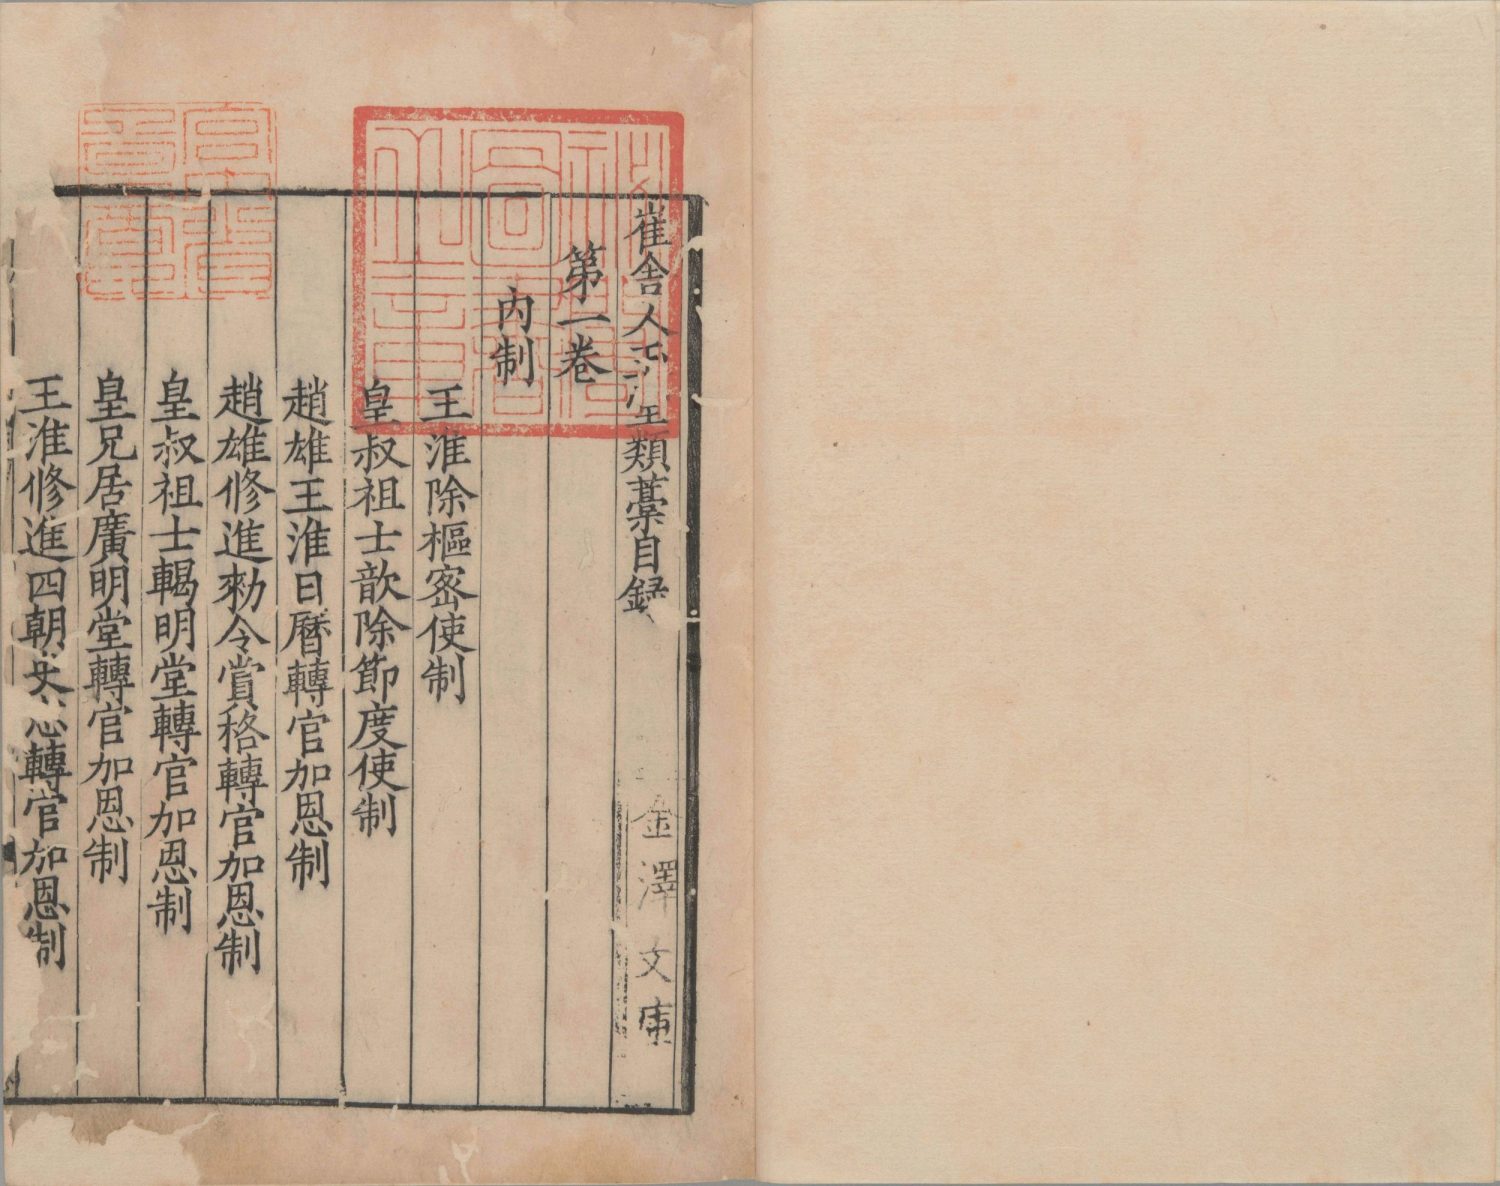 崔舍人玉堂類藁目録
第一卷
內制
王淮除樞密使制
皇叔祖士歆除節度使制
趙雄王淮日曆轉官加恩制
趙雄修進勑令賞格轉官加恩制
皇叔祖士輵明堂轉官加恩制
皇兄居廣明堂轉官加恩制
王淮修進四朝史志轉官加恩制
金澤文庫
秘閣圖書之章
宮內省圖書章